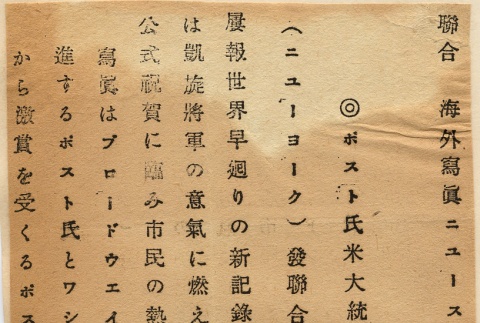 聯合　海外寫眞ニュース
◎ポスト氏米大統
（ニューヨーク）發聯合
屢報世界早廻りの新記錄
は凱旋將軍の意氣に燃え
公式祝賀に臨み市民の熱
寫眞はブロードウエイ
進するポスト氏とワシ
から激賞を受くるポス